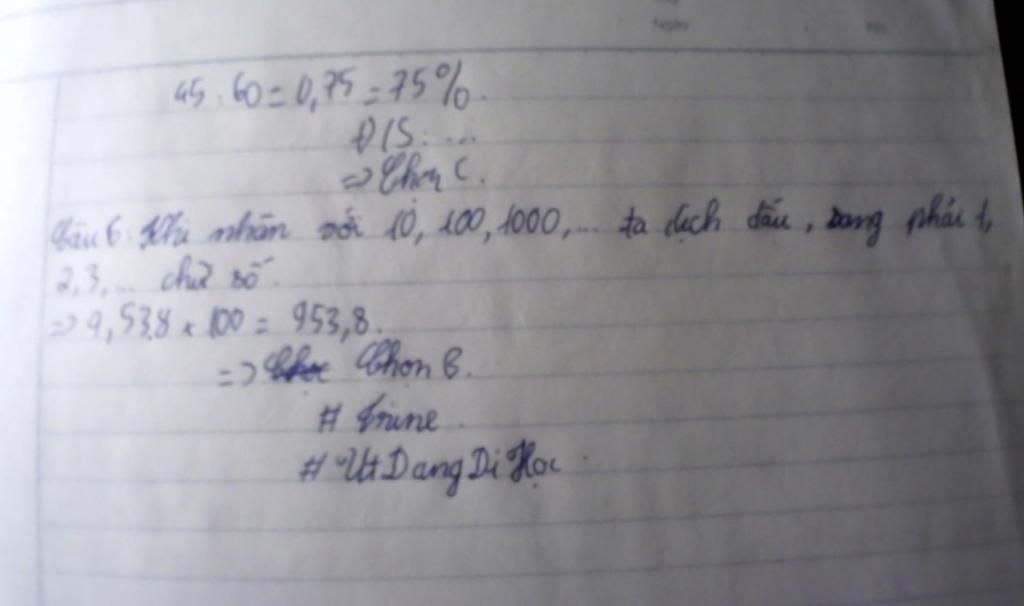 Ngày No.
45 : 60 = 0,75 = 75%.
Đ/S: ...
=> Chọn C.
Câu 6: Khi nhân với 10, 100, 1000,... ta dịch dấu , sang phải 1,
2, 3, ... chữ số.
=> 9,538 x 100 = 953,8.
=> Chọn B.
#
# Út Dang Di Học.